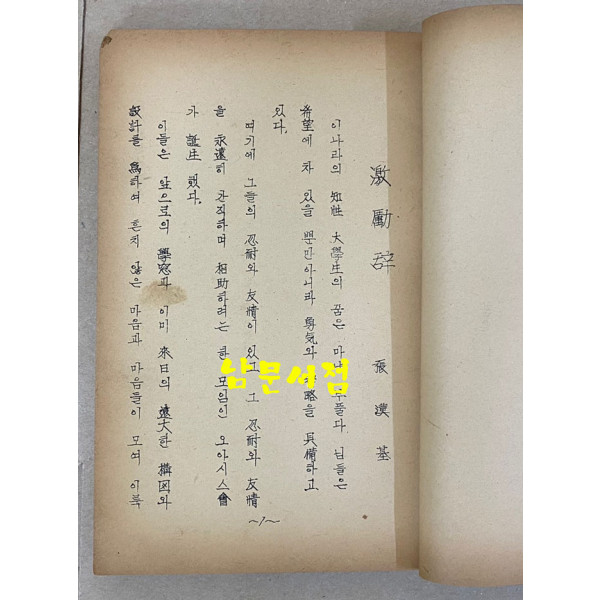 激勵辞
張漢基
이나라의 知性 大學生의 꿈은 마냥 푸르다. 님들은
希望에 차 있을 뿐만아니라 勇気와 智略을 具備하고
있다.
여기에 그들의 忍耐와 友情이 있고 그 忍耐와 友情
을 永遠히 간직하며 相助하려는 한 모임인 오아시스會
가 誕生 됐다.
이들은 앞으로의 學窓과 이미 來日의 遠大한 構図와
設計를 為하여 흔치 않은 마음과 마음들이 모여 이룩
~1~
남문서점